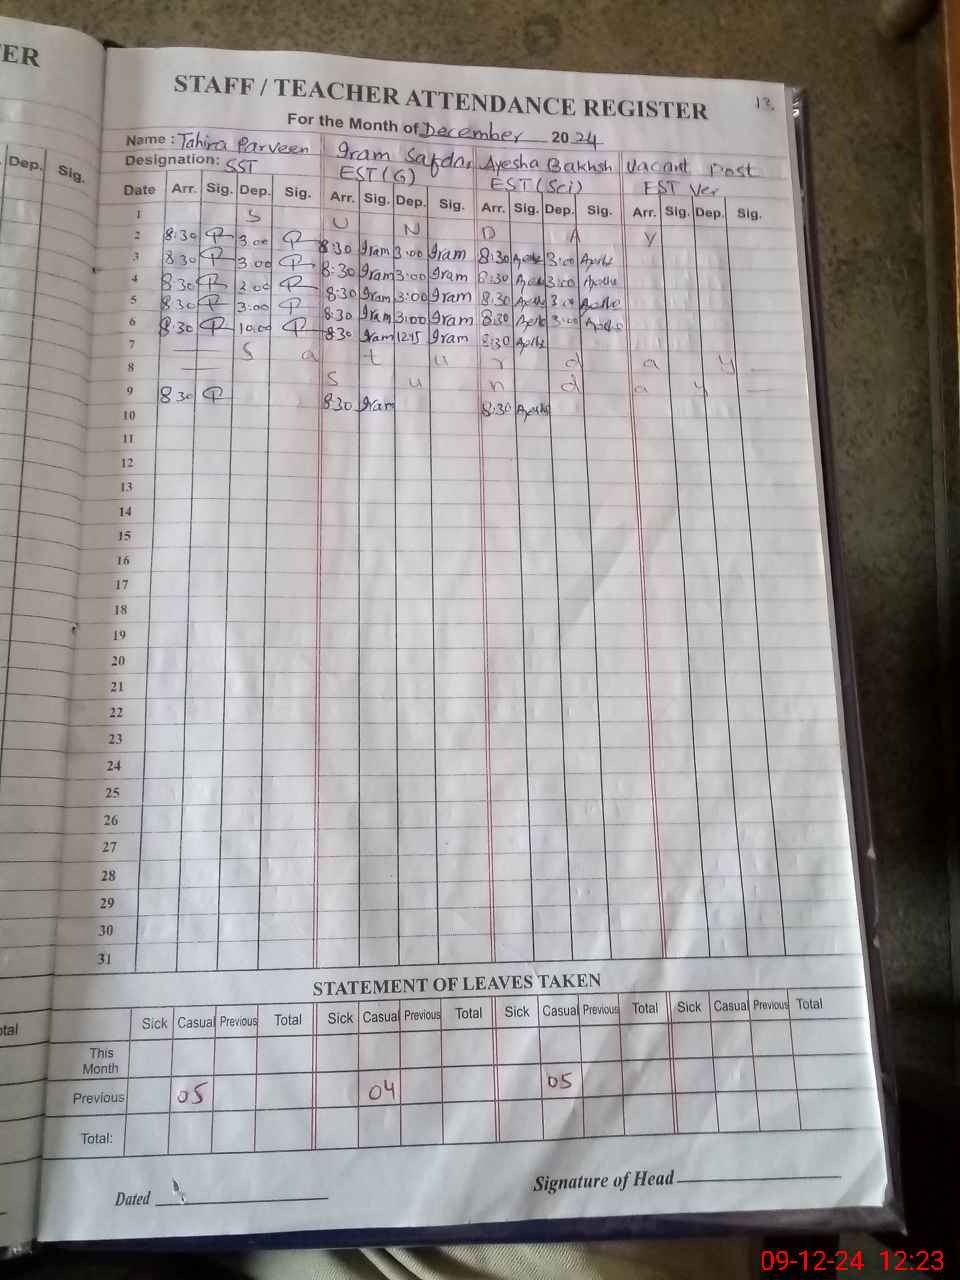 ER
13.
STAFF / TEACHER ATTENDANCE REGISTER
For the Month of December 2024
Name : Tahira Parveen Iram Safdar Ayesha Bakhsh Vacant Post
Designation: SST EST (G) EST (Sci) EST Ver
Dep. Sig.
Date Arr. Sig. Dep. Sig. Arr. Sig. Dep. Sig. Arr. Sig. Dep. Sig. Arr. Sig. Dep. Sig.
1 S U N D A Y
2 8:30 3:00 8:30 Iram 3:00 Iram 8:30 3:00
3 8:30 3:00 8:30 Iram 3:00 Iram 8:30 3:00
4 8:30 3:00 8:30 Iram 3:00 Iram 8:30 3:00
5 8:30 3:00 8:30 Iram 3:00 Iram 8:30 3:00
6 8:30 10:00 8:30 Iram 12:15 Iram 8:30
7 S a t u r d a y
8 S u n d a y
9 8:30 8:30 Iram 8:30
10
11
12
13
14
15
16
17
18
19
20
21
22
23
24
25
26
27
28
29
30
31
STATEMENT OF LEAVES TAKEN
otal Sick Casual Previous Total Sick Casual Previous Total Sick Casual Previous Total Sick Casual Previous Total
This
Month
Previous 05 04 05
Total:
Dated
Signature of Head
09-12-24 12:23